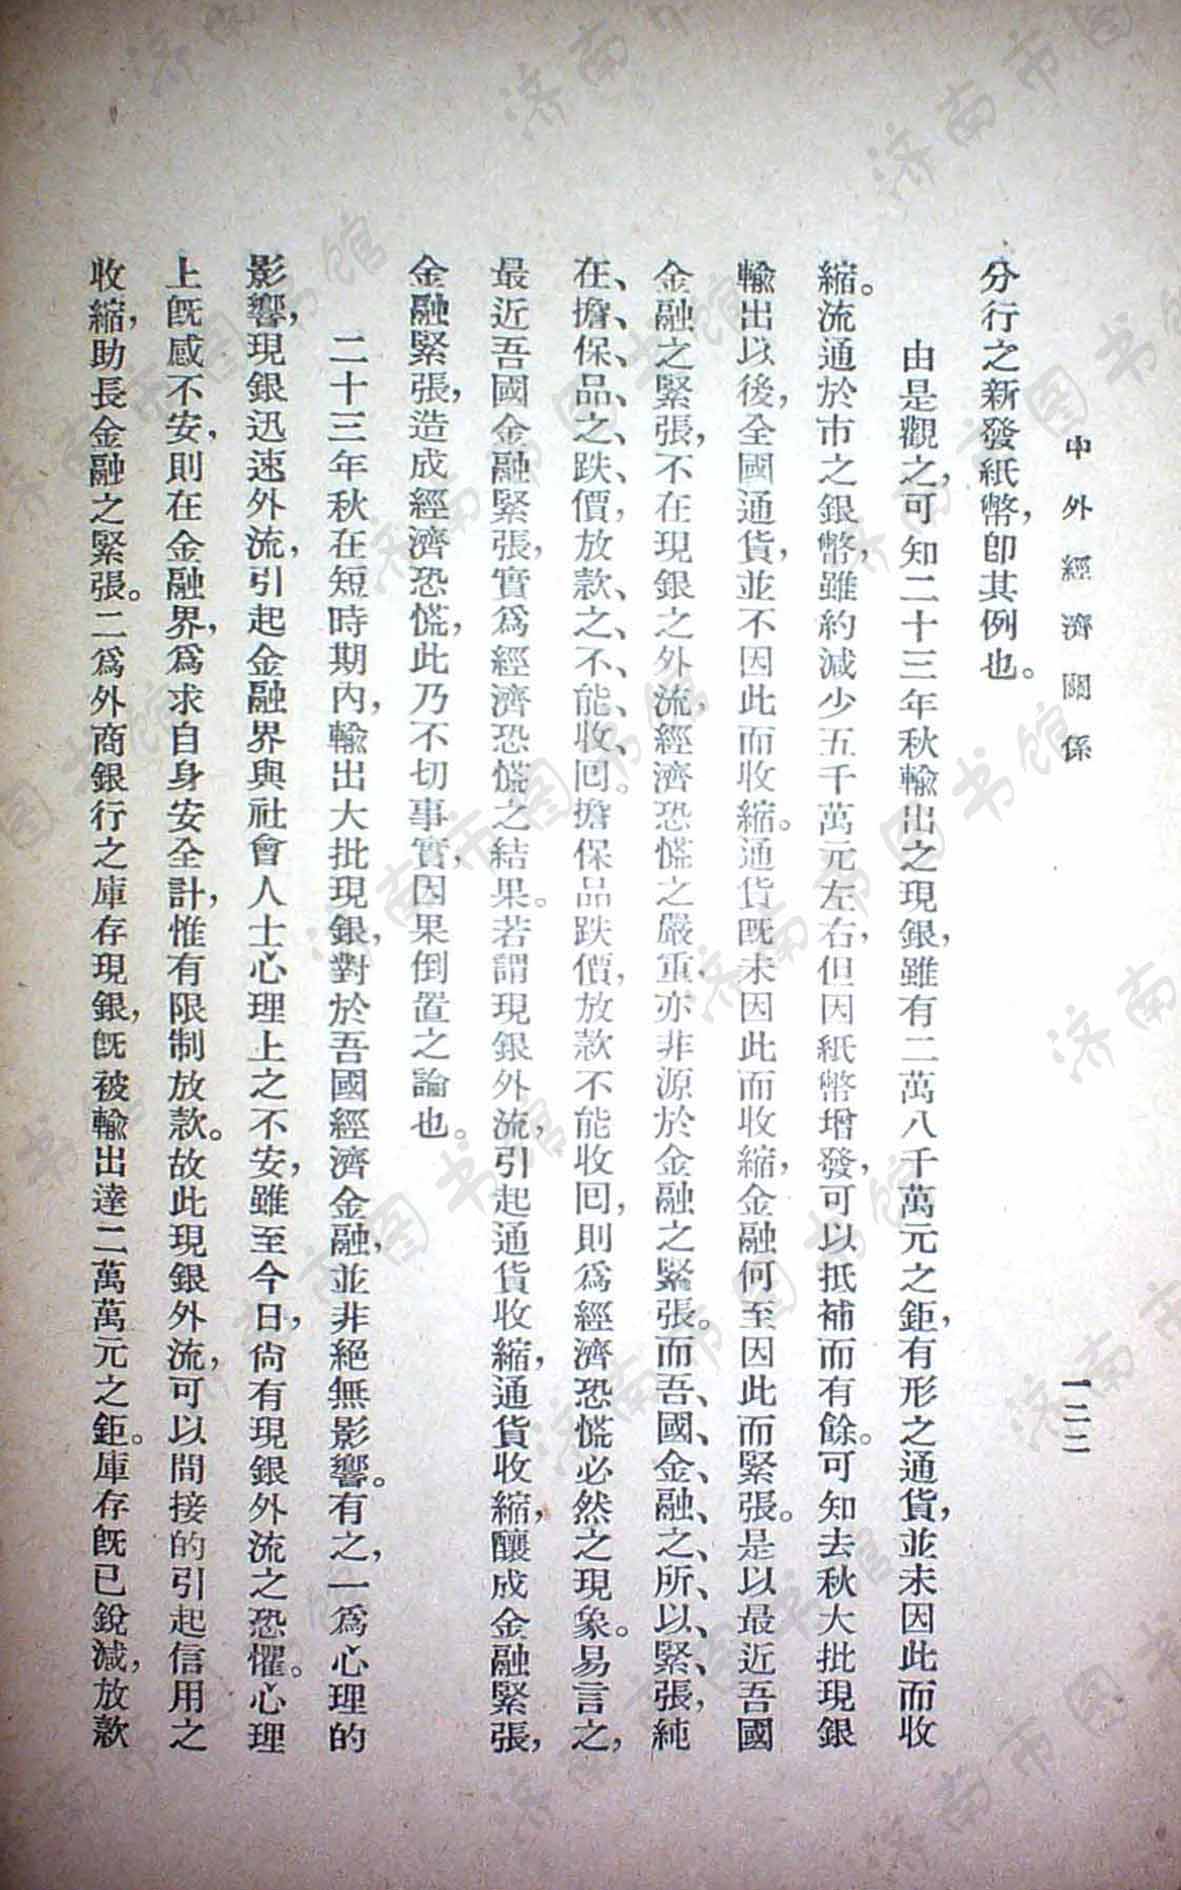 中外經濟關係
一二二
分行之新發紙幣，即其例也。
由是觀之，可知二十三年秋輸出之現銀，雖有二萬八千萬元之鉅，有形之通貨，並未因此而收
縮。流通於市之銀幣，雖約減少五千萬元左右，但因紙幣增發，可以抵補而有餘。可知去秋大批現銀
輸出以後，全國通貨，並不因此而收縮。通貨既未因此而收縮，金融何至因此而緊張。是以最近吾國
金融之緊張，不在現銀之外流，經濟恐慌之嚴重，亦非源於金融之緊張。而吾、國、金、融、之、所、以、緊、張，純
在、擔、保、品、之、跌、價，放、款、之、不、能、收、回。擔保品跌價，放款不能收回，則爲經濟恐慌必然之現象。易言之，
最近吾國金融緊張，實爲經濟恐慌之結果。若謂現銀外流，引起通貨收縮，通貨收縮，釀成金融緊張，
金融緊張，造成經濟恐慌，此乃不切事實，因果倒置之論也。
二十三年秋在短時期內，輸出大批現銀，對於吾國經濟金融，並非絕無影響。有之，一爲心理的
影響，現銀迅速外流，引起金融界與社會人士心理上之不安，雖至今日，尙有現銀外流之恐懼。心理
上旣感不安，則在金融界，爲求自身安全計，惟有限制放款。故此現銀外流，可以間接的引起信用之
收縮，助長金融之緊張。二爲外商銀行之庫存現銀，旣被輸出達二萬萬元之鉅。庫存旣已銳減，放款
济南市图书馆